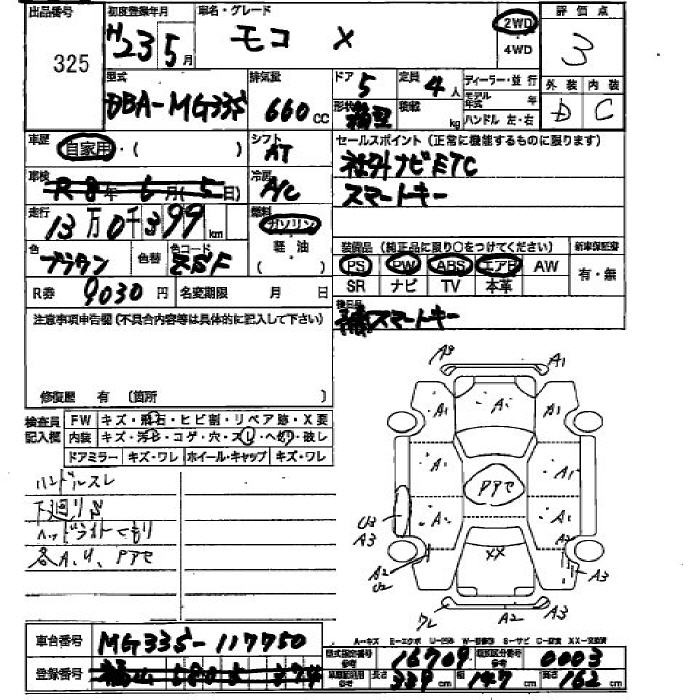 出品番号 325
初度登録年月 H23 5月
車名・グレード モコ X
2WD
4WD
評価点 3
外装 D 内装 C
型式 DBA-MG33S
排気量 660 cc
ドア 5
定員 4人
形状 箱型
積載 kg
ディーラー・並行
モデル年式 年
ハンドル 左・右
車歴 自家用・( )
シフト AT
車検 R8年6月(5日)
冷房 A/C
走行 13万0千399km
燃料 ガソリン
軽油
( )
色 ブラウン
色替
色コード
R券 9030円
名変期限 月 日
セールスポイント(正常に機能するものに限ります)
社外ナビETC
スマートキー
装備品(純正品に限り○をつけてください)
新車保証書
PS PW ABS エアB AW
SR ナビ TV 本革
有・無
後日品
スマートキー
注意事項申告欄(不具合内容等は具体的に記入して下さい)
修復歴 有 〔箇所 〕
検査員記入欄
FW キズ・飛石・ヒビ割・リペア跡・X要
内装 キズ・汚れ・コゲ・穴・スレ・ヘタリ・破レ
ドアミラー キズ・ワレ ホイール・キャップ キズ・ワレ
ハンドルスレ
下廻りS
ヘッドライトくもり
各A、U、Pアセ
A3 A1
A1 A・ A1
A1 A1
Pアセ
U3
A3
A1 A1
A2
U2
XX
A2
A3
ワレ A2 A3
A-キズ E-エクボ U-凹み W-修理跡 S-サビ C-腐食 XX-交換済
車台番号 MG33S-117750
登録番号 福山 580
型式指定番号 参考 16709
類別区分番号 参考 0003
長さ 339cm 幅 147cm 高さ 162cm